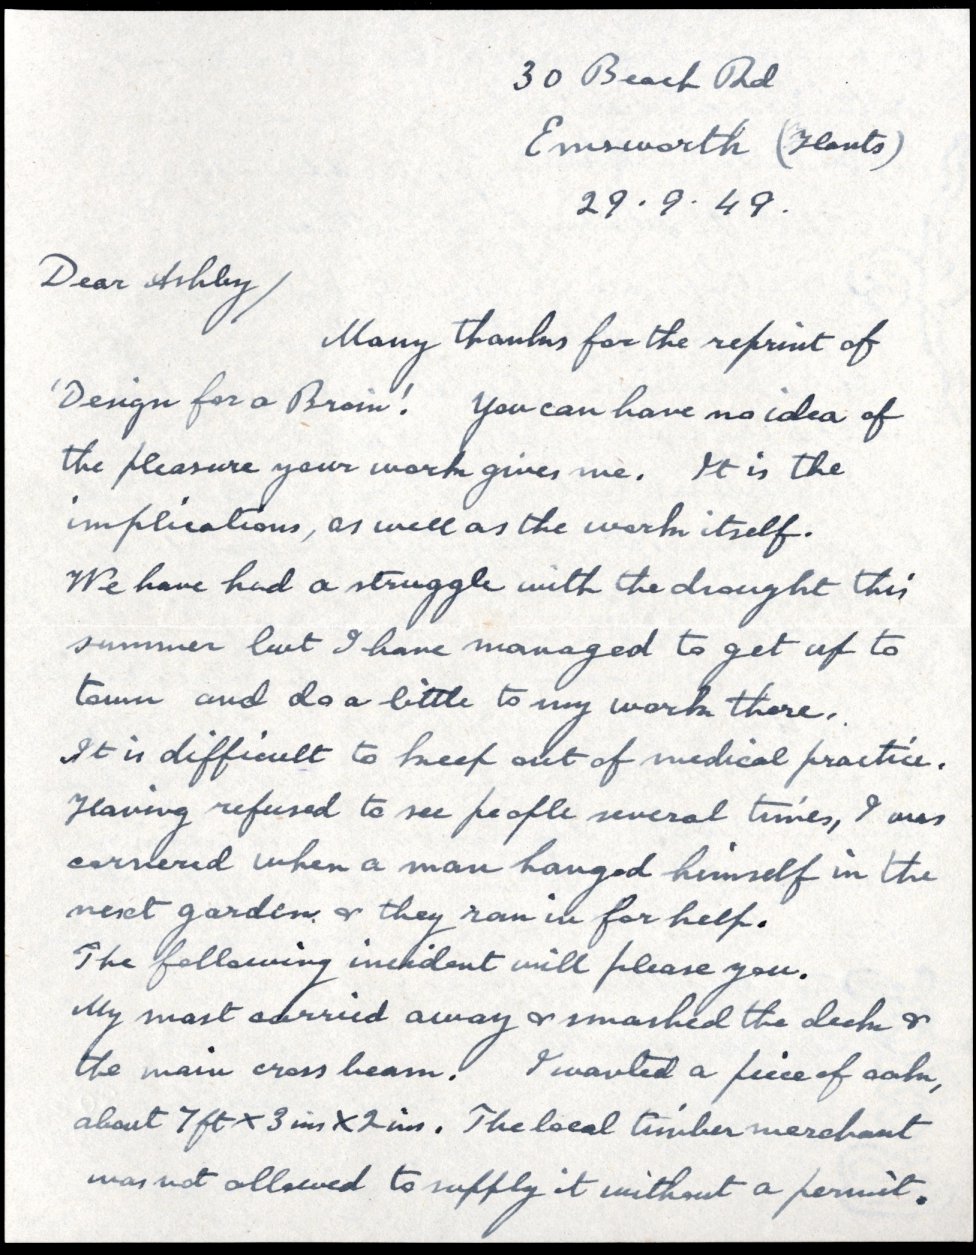 30 Beach Rd
Emsworth (Hants)
29.9.49.
Dear Ashby/
Many thanks for the reprint of
'Design for a Brain'. You can have no idea of
the pleasure your work gives me. It is the
implications, as well as the work itself.
We have had a struggle with the drought this
summer but I have managed to get up to
town and do a little to my work there.
It is difficult to keep out of medical practice.
Having refused to see people several times, I was
cornered when a man hanged himself in the
next garden. & they ran in for help.
The following incident will please you.
My mast carried away & smashed the deck &
the main cross beam. I wanted a piece of oak,
about 7ft X 3 ins X 2 ins. The local timber merchant
was not allowed to supply it without a permit.